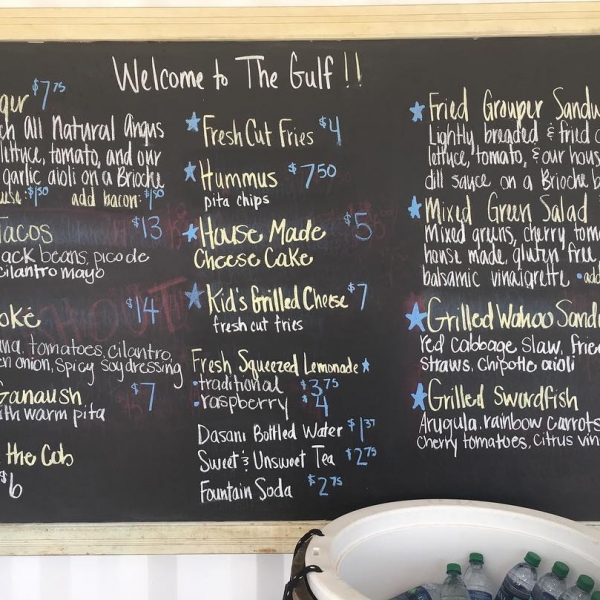 Welcome to The Gulf !!
$7.75
All Natural Angus
lettuce, tomato, and our
garlic aioli on a Brioche
$1.50 add bacon: $1.50
Tacos $13
beans, pico de
cilantro mayo
$14
tomatoes, cilantro,
onion, spicy soy dressing
Ganoush $7
with warm pita
the Cob
$6
Fresh Cut Fries $4
Hummus $7.50
pita chips
House Made $5
Cheese Cake
Kid's Grilled Cheese $7
fresh cut fries
Fresh Squeezed Lemonade
• traditional $3.75
• raspberry $4
Dasani Bottled Water $1.37
Sweet & Unsweet Tea $2.75
Fountain Soda $2.75
Fried Grouper
Lightly breaded & fried
lettuce, tomato, & our
dill sauce on a Brioche
Mixed Green Salad
Mixed greens, cherry
house made, gluten free
balsamic vinaigrette •
Grilled Wahoo
red cabbage slaw,
straws, chipotle aioli
Grilled Swordfish
Arugula, rainbow carrots
cherry tomatoes, citrus